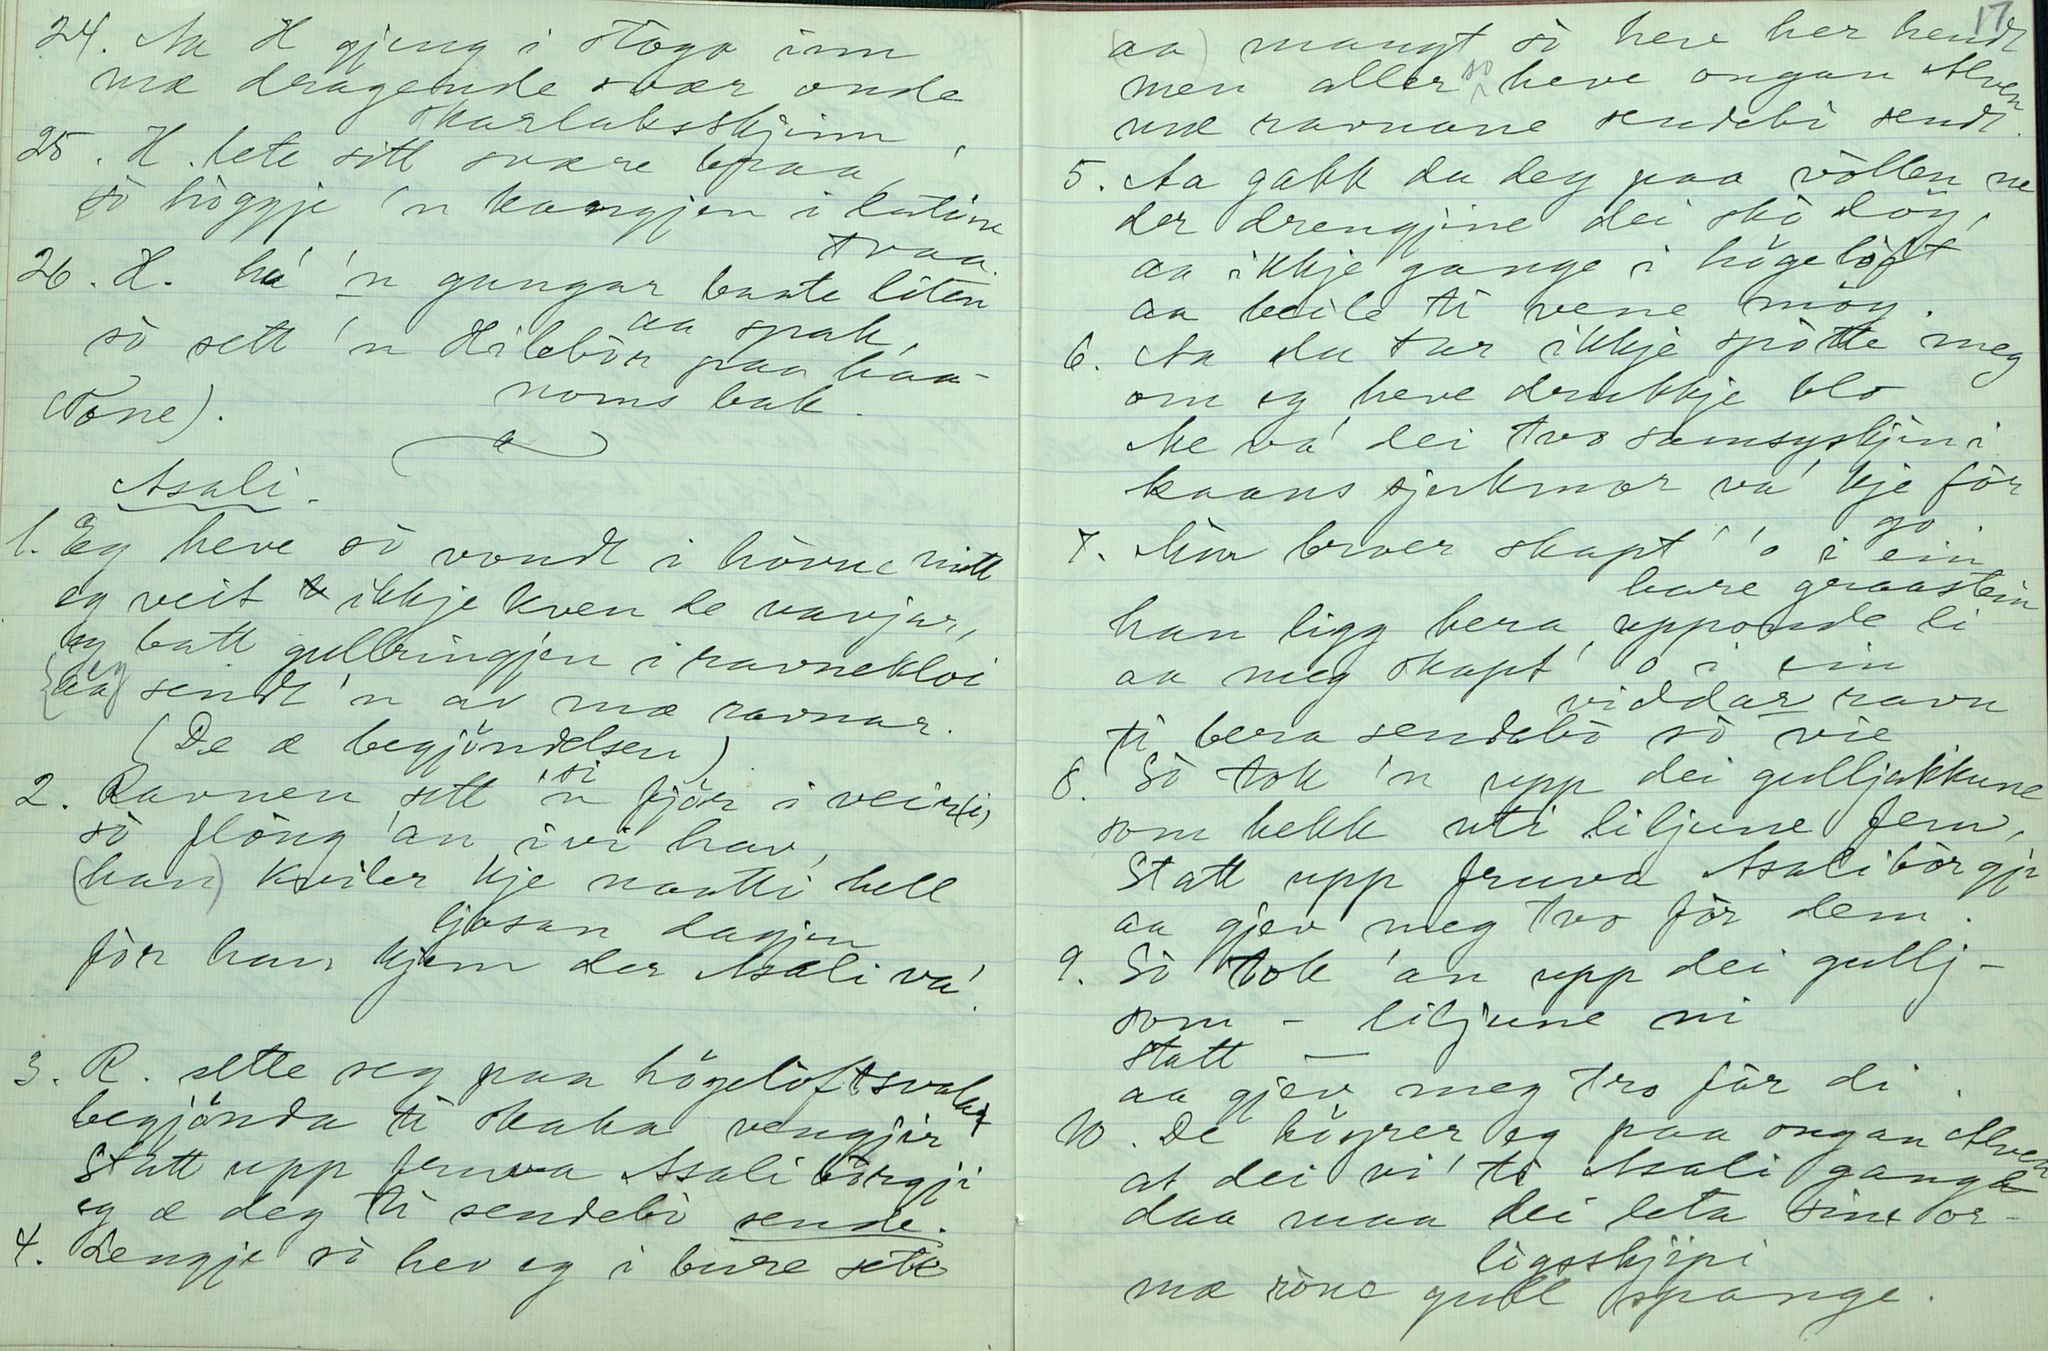 24. Aa H gjeng i stogo inn
mæ dragende svær onde
skarlaksskjinn,
25. H. lete sitt svære braa,
sò hòggje 'n kongjen i lutine
tvaa.
26. H. há 'n gungar baate liten
aa spak,
sò sett 'n Hilebòr paa haa-
noms bak.
(Tone).
Asali.
1. Eg heve sò vondt i hòvue mitt
eg veit ikkje kven de varjar,
eg batt gullringjen i ravneklòi
aa eg sendt 'n av mæ ravnar.
(De æ begjöndelsen)
2. Ravnen sett 'n si fjör i veir(i)
sò flöng 'an ivi hav,
(han) kviler kje nontti hell
ljosan dagjen
fòr han kjem der Asali vá.
3. R. sette seg paa högeloftsvalei
begjönda ti skaka vengjir
Statt upp fruva Asali börgji
eg æ deg ti sendebò sende.
4. Lengje sò hev eg i bure sete
17
(aa) mangt sò heve her hendt
men aller sò heve ongan Alven
mæ ravnane sendebi sendt.
5. Aa gakk du deg paa vòllen ne
der drengjine dei skò döy,
aa ikkje gange i högeloft
aa beile ti vene möy.
6. Aa du tar ikkje spòtte meg
om eg heve drukkje blo
Me vá dei tvo samsyskjini
haans sjukmor vá kje fòr
go.
7. Min bror skapt' 'o i ein
bare graastein
han ligg bera upponde li
aa meg skapt' o i ein
viddar ravn
ti bera sendebò sò vie
8. Sò tok 'n upp dei gulljakkune
som hekk uti liljune fem,
Statt upp fruva Asalibörgji
aa gjev meg tvo fòr dem.
9. Sò tok 'an upp dei gullj-
som – liljune ni
statt —
aa gjev meg tro fòr di.
10. De höyrer eg paa ongan Alven
at dei vi' ti Asali gange
daa maa dei leta sine or-
lògsskjipi
mæ röne gull spange.